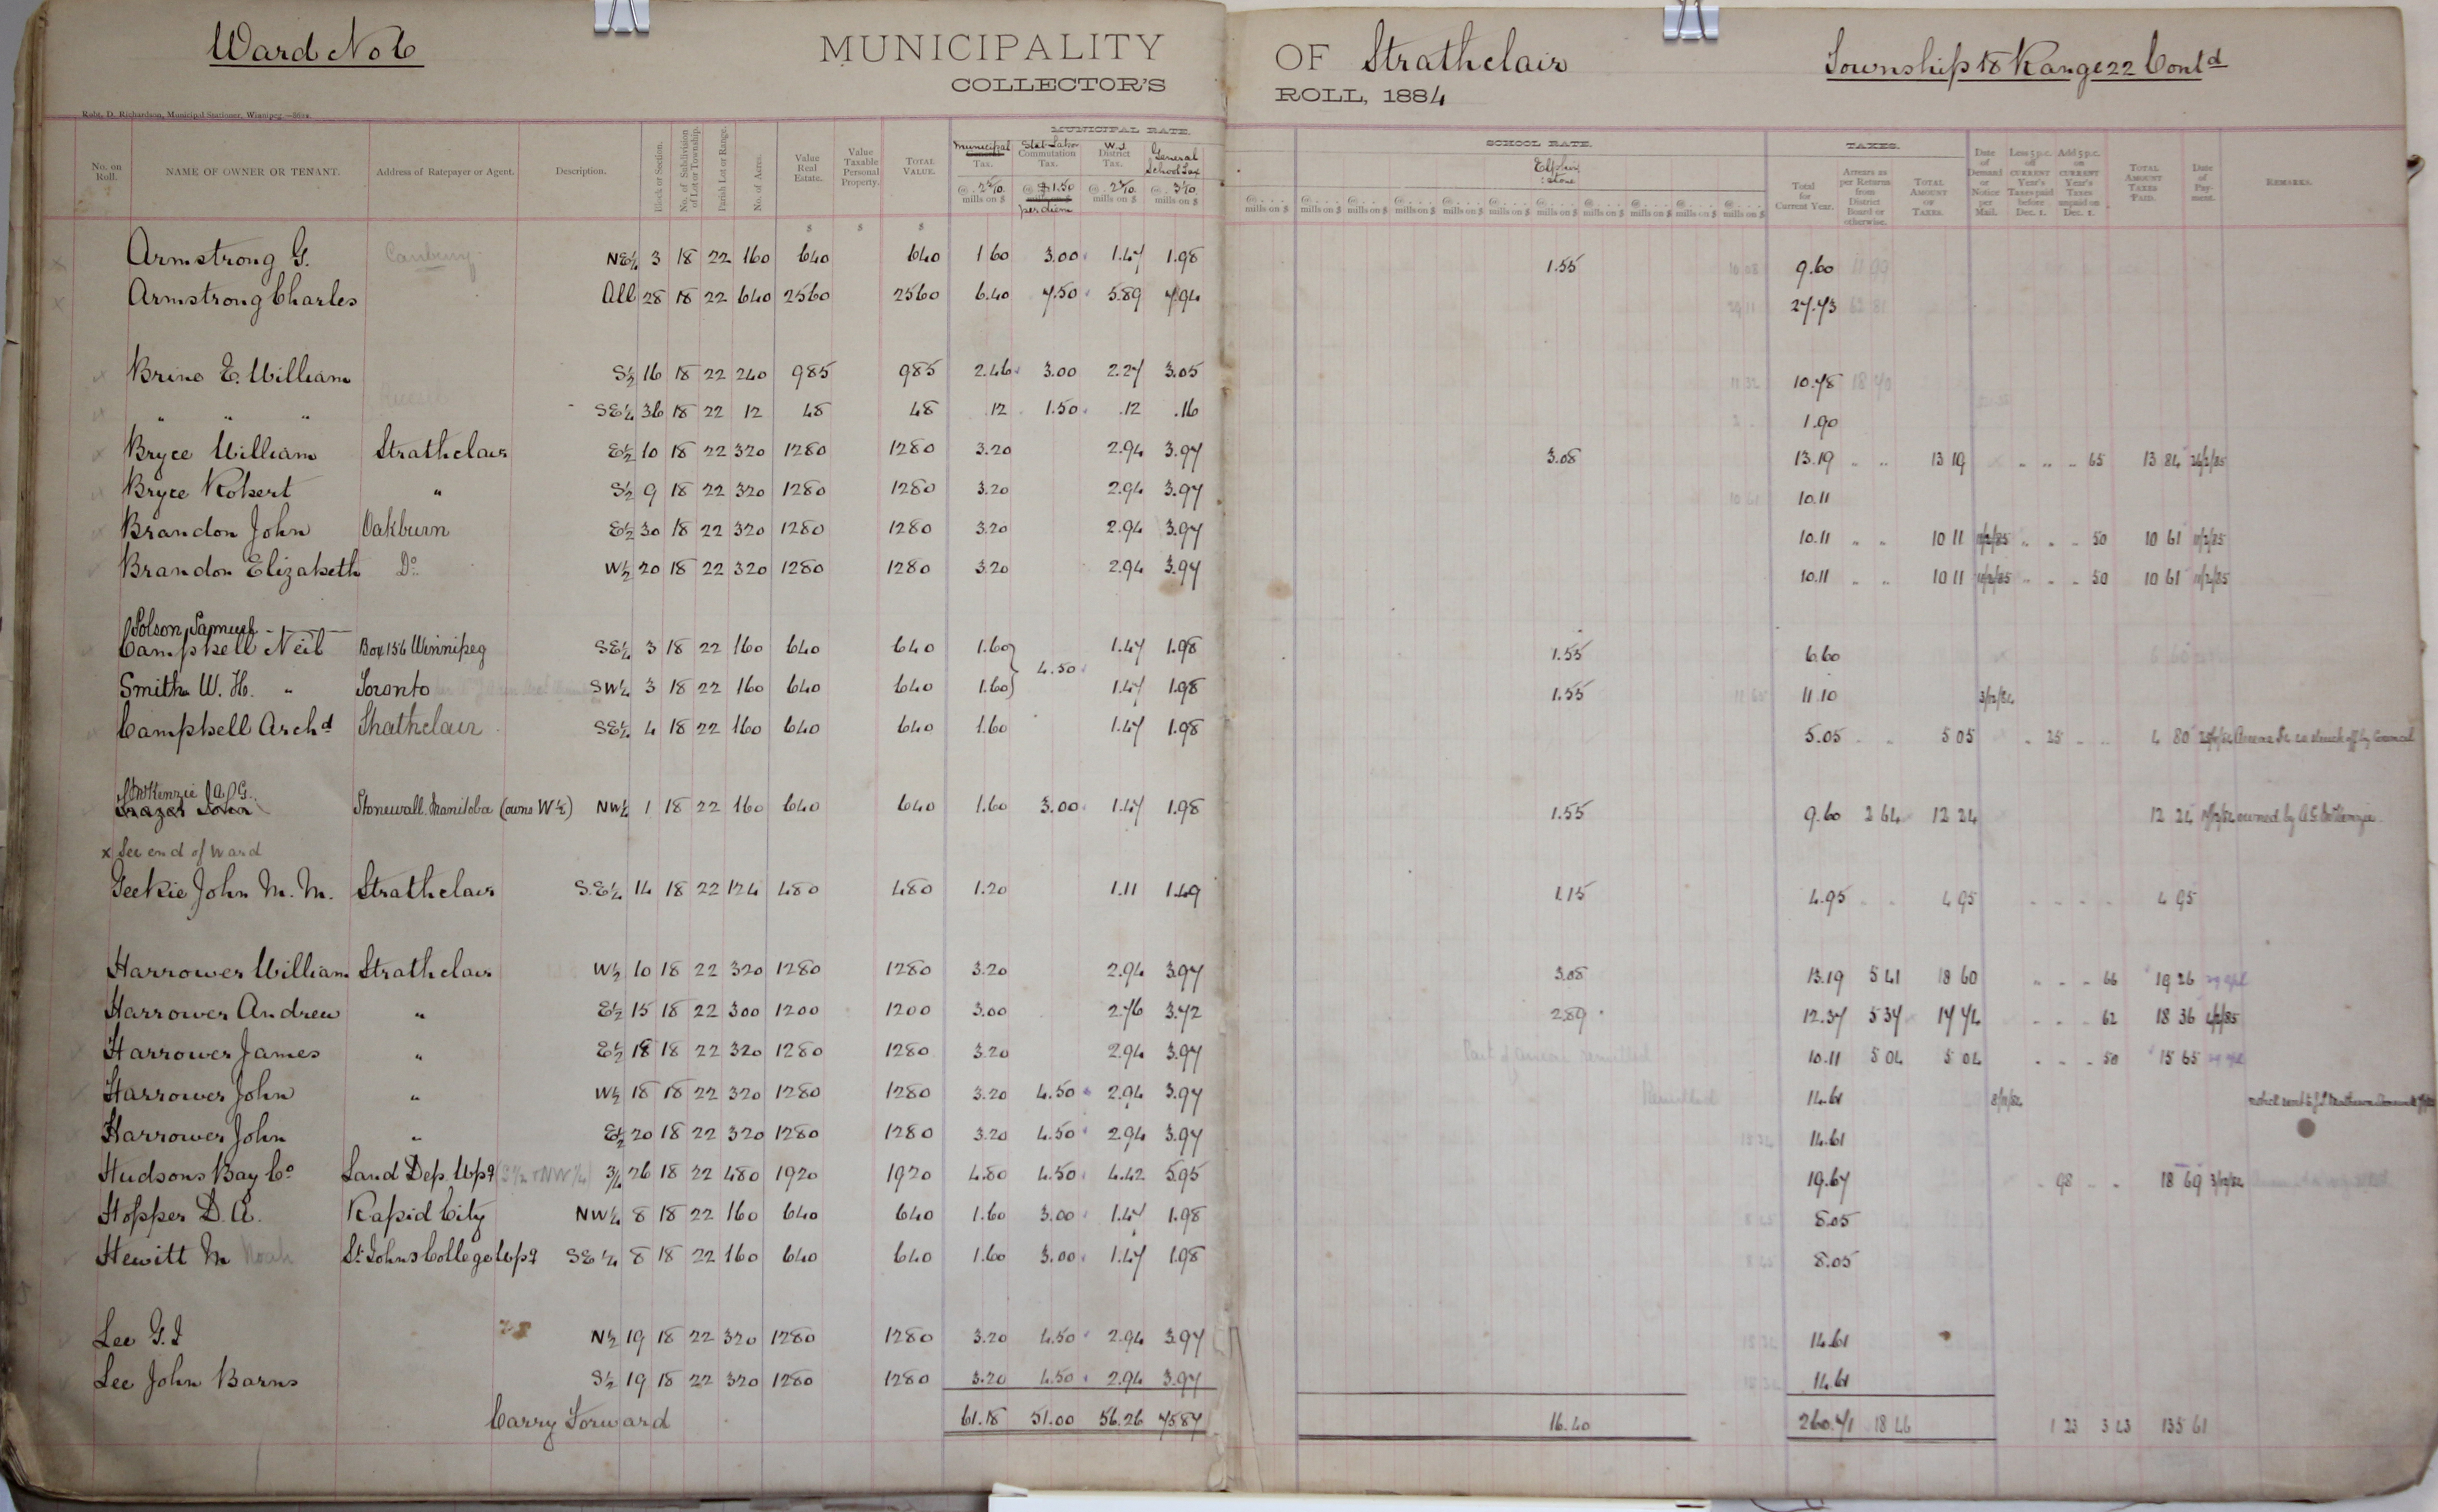 Ward No 6 MUNICIPALITY OF Strathclair Township 18 Range 22 Contd
COLLECTOR'S ROLL, 1884
Robt. D. Richardson, Municipal Stationer, Winnipeg
MUNICIPAL RATE. SCHOOL RATE. TAXES.
No. on Roll. NAME OF OWNER OR TENANT. Address of Ratepayer or Agent. Description. Block or Section. No. of Subdivision of Lot or Township. Parish Lot or Range. No. of Acres. Value Real Estate. Value Taxable Personal Property. TOTAL VALUE. Municipal Tax. Stat Labor Commutation Tax. W.J. District Tax. General School Tax Elphinstone Total for Current Year. Arrears as per Returns from District Board or otherwise. TOTAL AMOUNT OF TAXES. Date of Demand or Notice per Mail. Less 5 p.c. off CURRENT Year's Taxes paid before Dec. 1. Add 5 p.c. on CURRENT Year's Taxes unpaid on Dec. 1. TOTAL AMOUNT TAXES PAID. Date of Payment. REMARKS.
mills on $ @ $1.50 per diem mills on $ mills on $
Armstrong G. NE¼ 3 18 22 160 640 640 1 60 3.00 1.47 1.98 1.55 9.60
Armstrong Charles All 28 18 22 640 2560 2560 6.40 7.50 5.89 7.94 27.73
Brine E. William S½ 16 18 22 240 985 985 2.46 3.00 2.27 3.05 10.78
" " " SE¼ 36 18 22 12 48 48 .12 1.50 .12 .16 1.90
Bryce William Strathclair E½ 10 18 22 320 1280 1280 3.20 2.94 3.97 3.08 13.19 " " 13 19 " " " 65 13 84 26/2/85
Bryce Robert " S½ 9 18 22 320 1280 1280 3.20 2.94 3.97 10.11
Brandon John Oakburn E½ 30 18 22 320 1280 1280 3.20 2.94 3.97 10.11 " " 10 11 11/2/85 " " " 50 10 61 11/2/85
Brandon Elizabeth Do W½ 20 18 22 320 1280 1280 3.20 2.94 3.97 10.11 " " 10 11 11/2/85 " " " 50 10 61 11/2/85
Polson, Samuel
Campbell Neil Box 156 Winnipeg SE¼ 3 18 22 160 640 640 1.60 1.47 1.98 1.55 6.60
4.50
Smith W. H. " Toronto SW¼ 3 18 22 160 640 640 1.60 1.47 1.98 1.55 11.10 3/12/84
Campbell Archd Strathclair SE¼ 4 18 22 160 640 640 1.60 1.47 1.98 5.05 " " 5 05 " 25 " " 4 80 struck off by Council
McKenzie A. G.
Frazer John Stonewall Manitoba (owns W½) NW¼ 1 18 22 160 640 640 1.60 3.00 1.47 1.98 1.55 9.60 2 64 12 24 12 24 owned by A G McKenzie
x See end of Ward
Geekie John M. M. Strathclair S.E¼ 14 18 22 124 480 480 1.20 1.11 1.49 1.15 4.95 " " 4 95 " " " " 4 95
Harrower William Strathclair W½ 10 18 22 320 1280 1280 3.20 2.94 3.97 3.08 13.19 5 41 18 60 " " " 66 19 26
Harrower Andrew " E½ 15 18 22 300 1200 1200 3.00 2.76 3.72 2.89 12.37 5 37 17 74 " " " 62 18 36
Harrower James " E½ 18 18 22 320 1280 1280 3.20 2.94 3.97 Part of arrears remitted 10.11 5 04 5 04 " " " 50 15 65
Harrower John " W½ 18 18 22 320 1280 1280 3.20 4.50 2.94 3.97 Remitted 14.61
Harrower John " E½ 20 18 22 320 1280 1280 3.20 4.50 2.94 3.97 14.61
Hudsons Bay Co Land Dep. Wpg (S½ + NW¼) ¾ 26 18 22 480 1920 1920 4.80 4.50 4.42 5.95 19.67 " 98 " " 18 69 3/12/84
Hopper D. A. Rapid City NW¼ 8 18 22 160 640 640 1.60 3.00 1.47 1.98 8.05
Hewitt M Noah St Johns College Wpg SE¼ 8 18 22 160 640 640 1.60 3.00 1.47 1.98 8.05
Lee G. I N½ 19 18 22 320 1280 1280 3.20 4.50 2.94 3.97 14.61
Lee John Barns S½ 19 18 22 320 1280 1280 3.20 4.50 2.94 3.97 14.61
Carry Forward 61.18 51.00 56.26 75.87 16.40 260.71 18 46 1 23 3 43 135 61